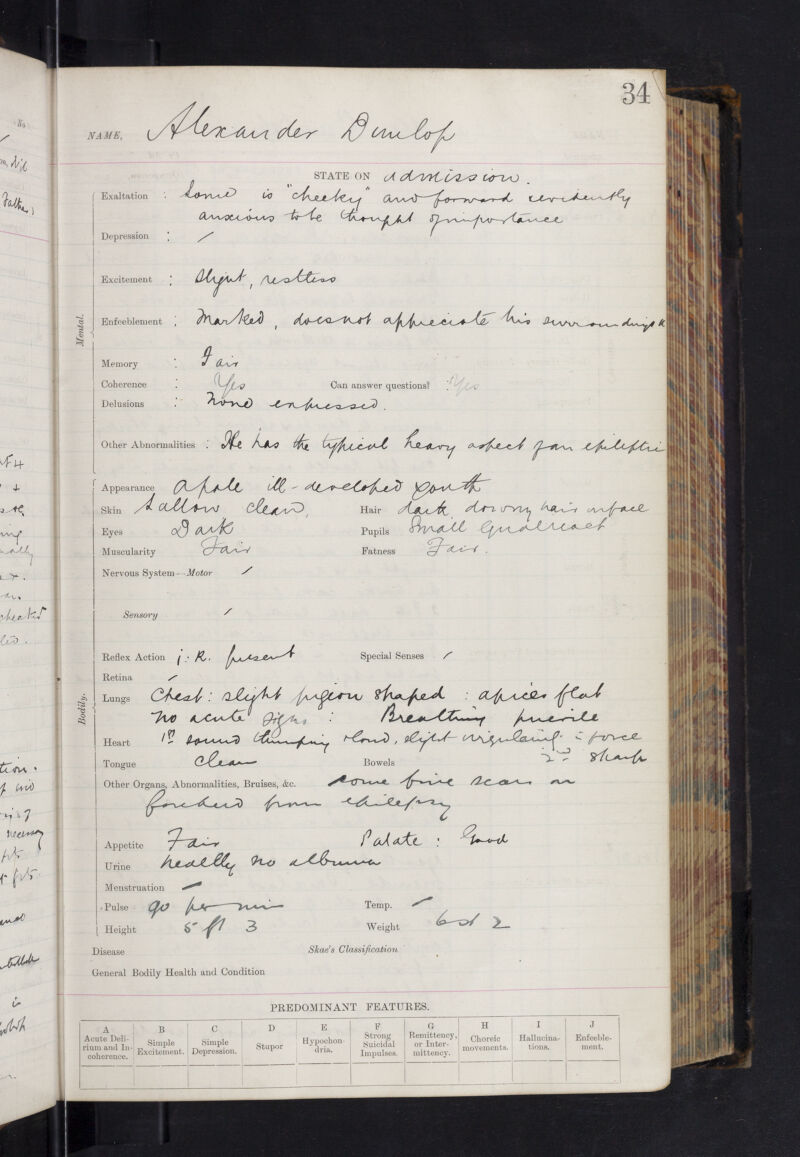 34
NAME, Alexander Dunlop
STATE ON admission.
Mental.
Exaltation : Some is "cheeky" and forward & evidently
anxious to be thought of importance
Depression : /
Excitement : Slight, restless
Enfeeblement : Marked, does not appreciate his surroundings
Memory : Fair
Coherence : Yes Can answer questions? : Yes
Delusions : None expressed.
Other Abnormalities : He has the typical heavy aspect of an epileptic
Bodily.
Appearance a pale ill-developed youth
Skin Sallow clean, Hair dark, downy hair on face
Eyes Dark Pupils Small Equal react
Muscularity Fair Fatness Fair.
Nervous System—Motor /
Sensory /
Reflex Action j.. R. present Special Senses /
Retina /
Lungs Chest : slight pigeon shaped : apices flat
No acute signs : Breathing puerile
Heart 1st sound thumping & loud, slight in force
Tongue Clean Bowels 2nd sharp
Other Organs, Abnormalities, Bruises, &c. some fine scars on
forehead from epilepsy
Appetite Fair Palate : Good
Urine healthy no albumen
Menstruation /
Pulse 90 per min Temp. /
Height 5 ft 3 Weight 6 st 2
Disease Skae's Classification
General Bodily Health and Condition
PREDOMINANT FEATURES.
A B C D E F G H I J
Acute Deli-
rium and In-
coherence.
Simple
Excitement.
Simple
Depression.
Stupor
Hypochon-
dria.
Strong
Suicidal
Impulses.
Remittency,
or Inter-
mittency.
Choreic
movements.
Hallucina-
tions.
Enfeeble-
ment.